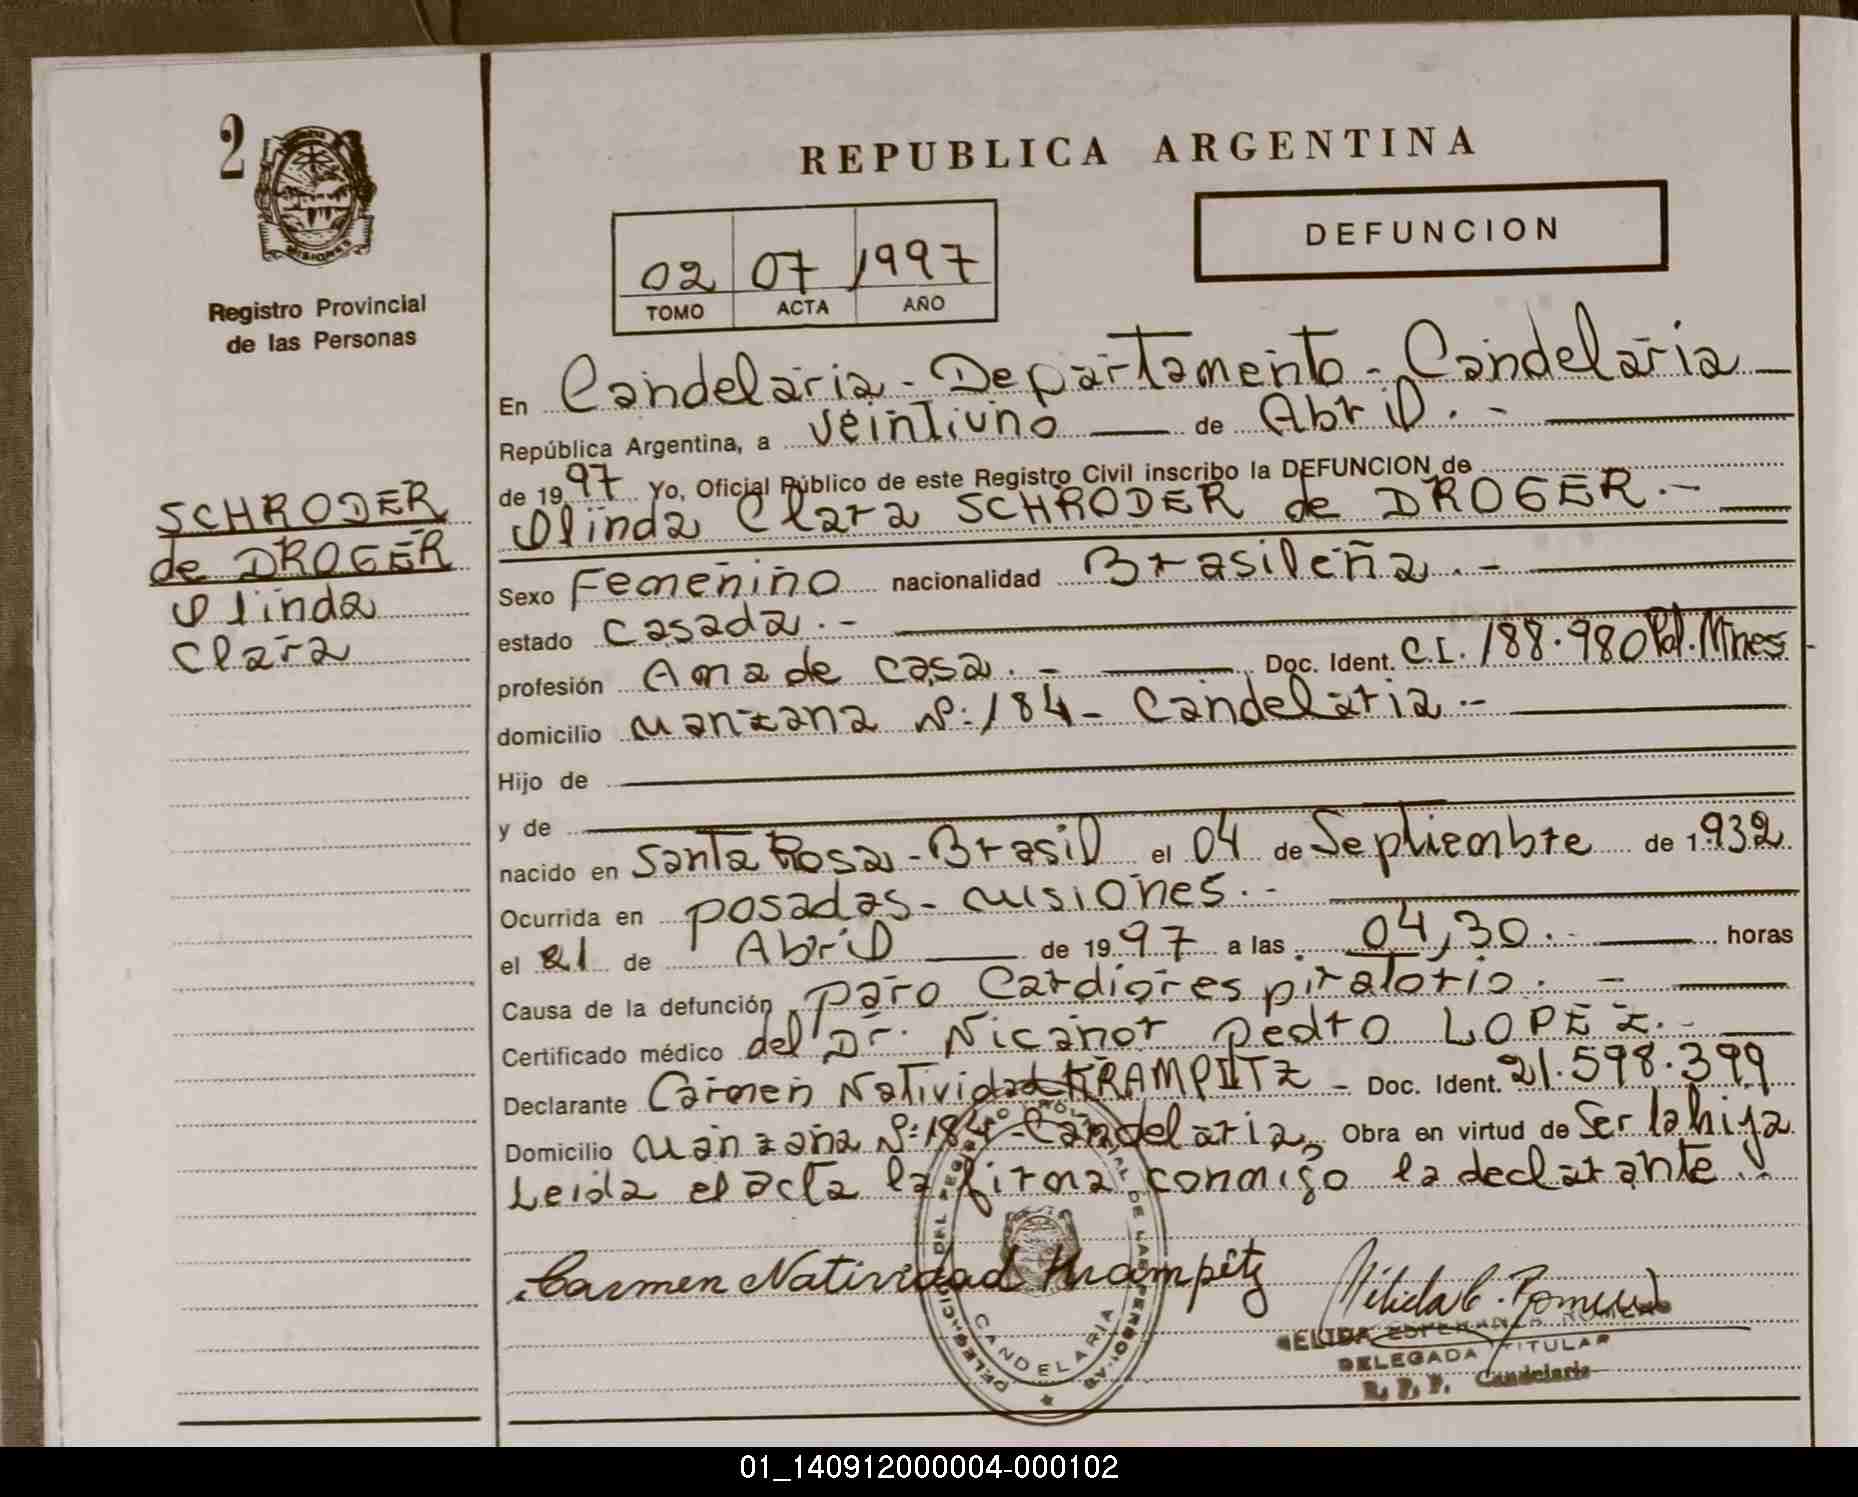 2
MISIONES
Registro Provincial
de las Personas
SCHRODER
de DROGER
Olinda
Clara
REPUBLICA ARGENTINA
DEFUNCION
02 07 1997
TOMO ACTA AÑO
En Candelaria - Departamento - Candelaria
República Argentina, a veintiuno de Abril.-
de 1997 Yo, Oficial Público de este Registro Civil inscribo la DEFUNCION de
Olinda Clara SCHRODER de DROGER.-
Sexo Femenino nacionalidad Brasileña.-
estado casada.-
profesión Ama de casa.- Doc. Ident. C.I. 188.980 Pol. Mnes
domicilio Manzana Nº: 184 - Candelaria.-
Hijo de
y de
nacido en Santa Rosa - Brasil el 04 de Septiembre de 1.932
Ocurrida en posadas - Misiones.-
el 21 de Abril de 1997 a las 04,30.- horas
Causa de la defunción paro Cardiorespiratorio.-
Certificado médico del Dr. Nicanor Pedro LOPEZ.-
Declarante Carmen Natividad KRAMPITZ - Doc. Ident. 21.598.399
Domicilio Manzana Nº: 184 - Candelaria, Obra en virtud de Ser la hija
Leida el acta la firma conmigo la declarante.-
Carmen Natividad Krampitz
DELEGACION DEL REGISTRO PROVINCIAL DE LAS PERSONAS
CANDELARIA
ELIDA ESPERANZA ROMERO
DELEGADA TITULAR
R. P. P. Candelaria
01_140912000004-000102